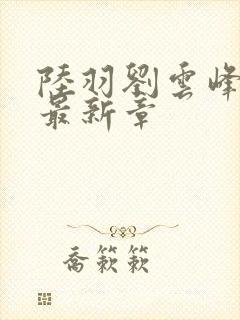 陸羽劉雲峰
最新章
喬籔籔